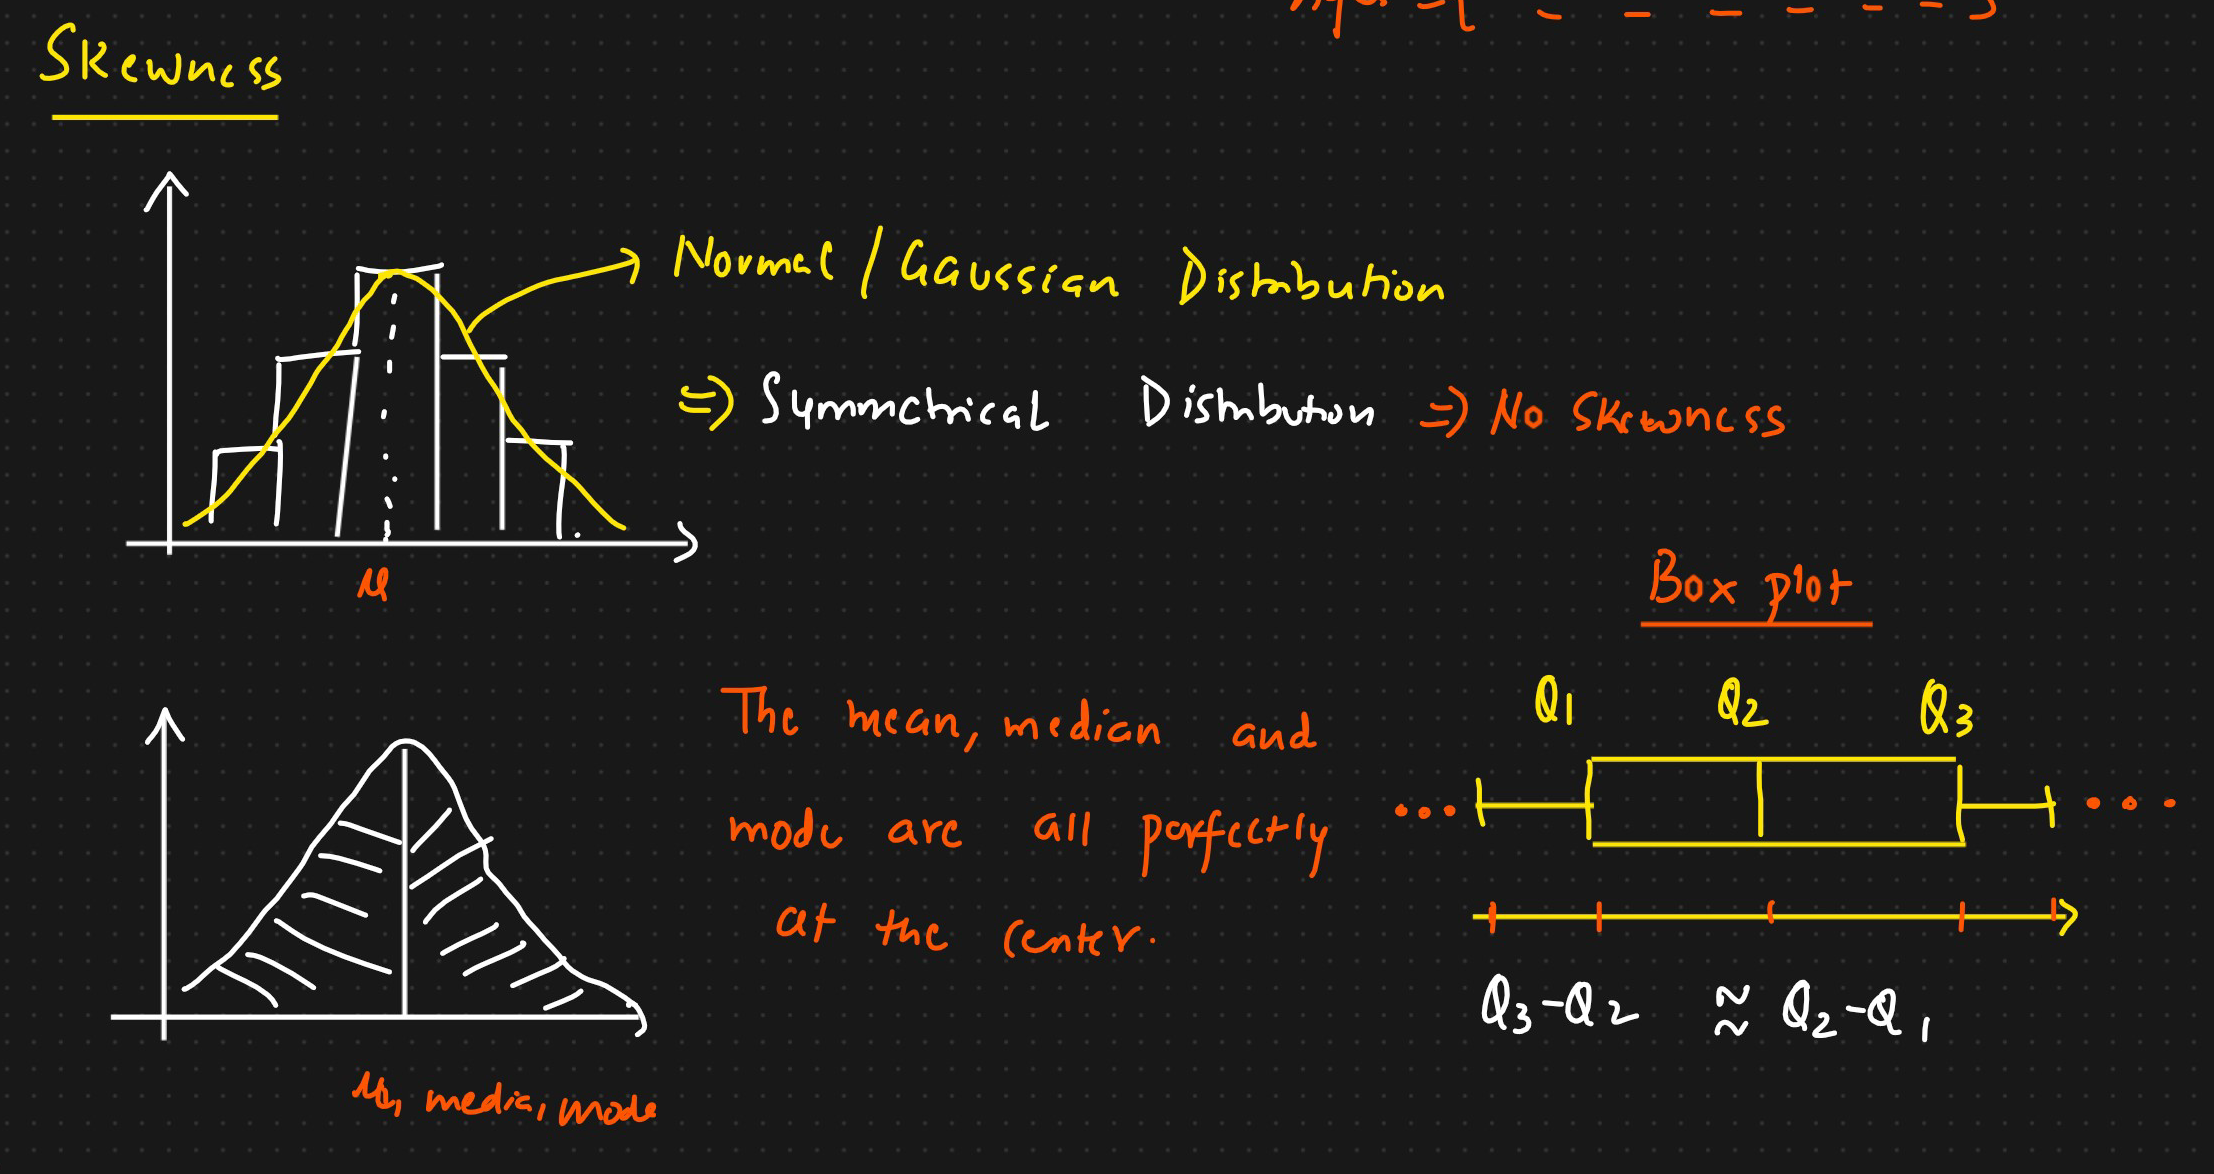 Skewness
Normal / Gaussian Distribution
=) Symmetrical Distribution =) No Skewness
μ
Box plot
The mean, median and
mode are all perfectly
at the center.
Q1 Q2 Q3
Q3-Q2 ≈ Q2-Q1
μ, media, mode